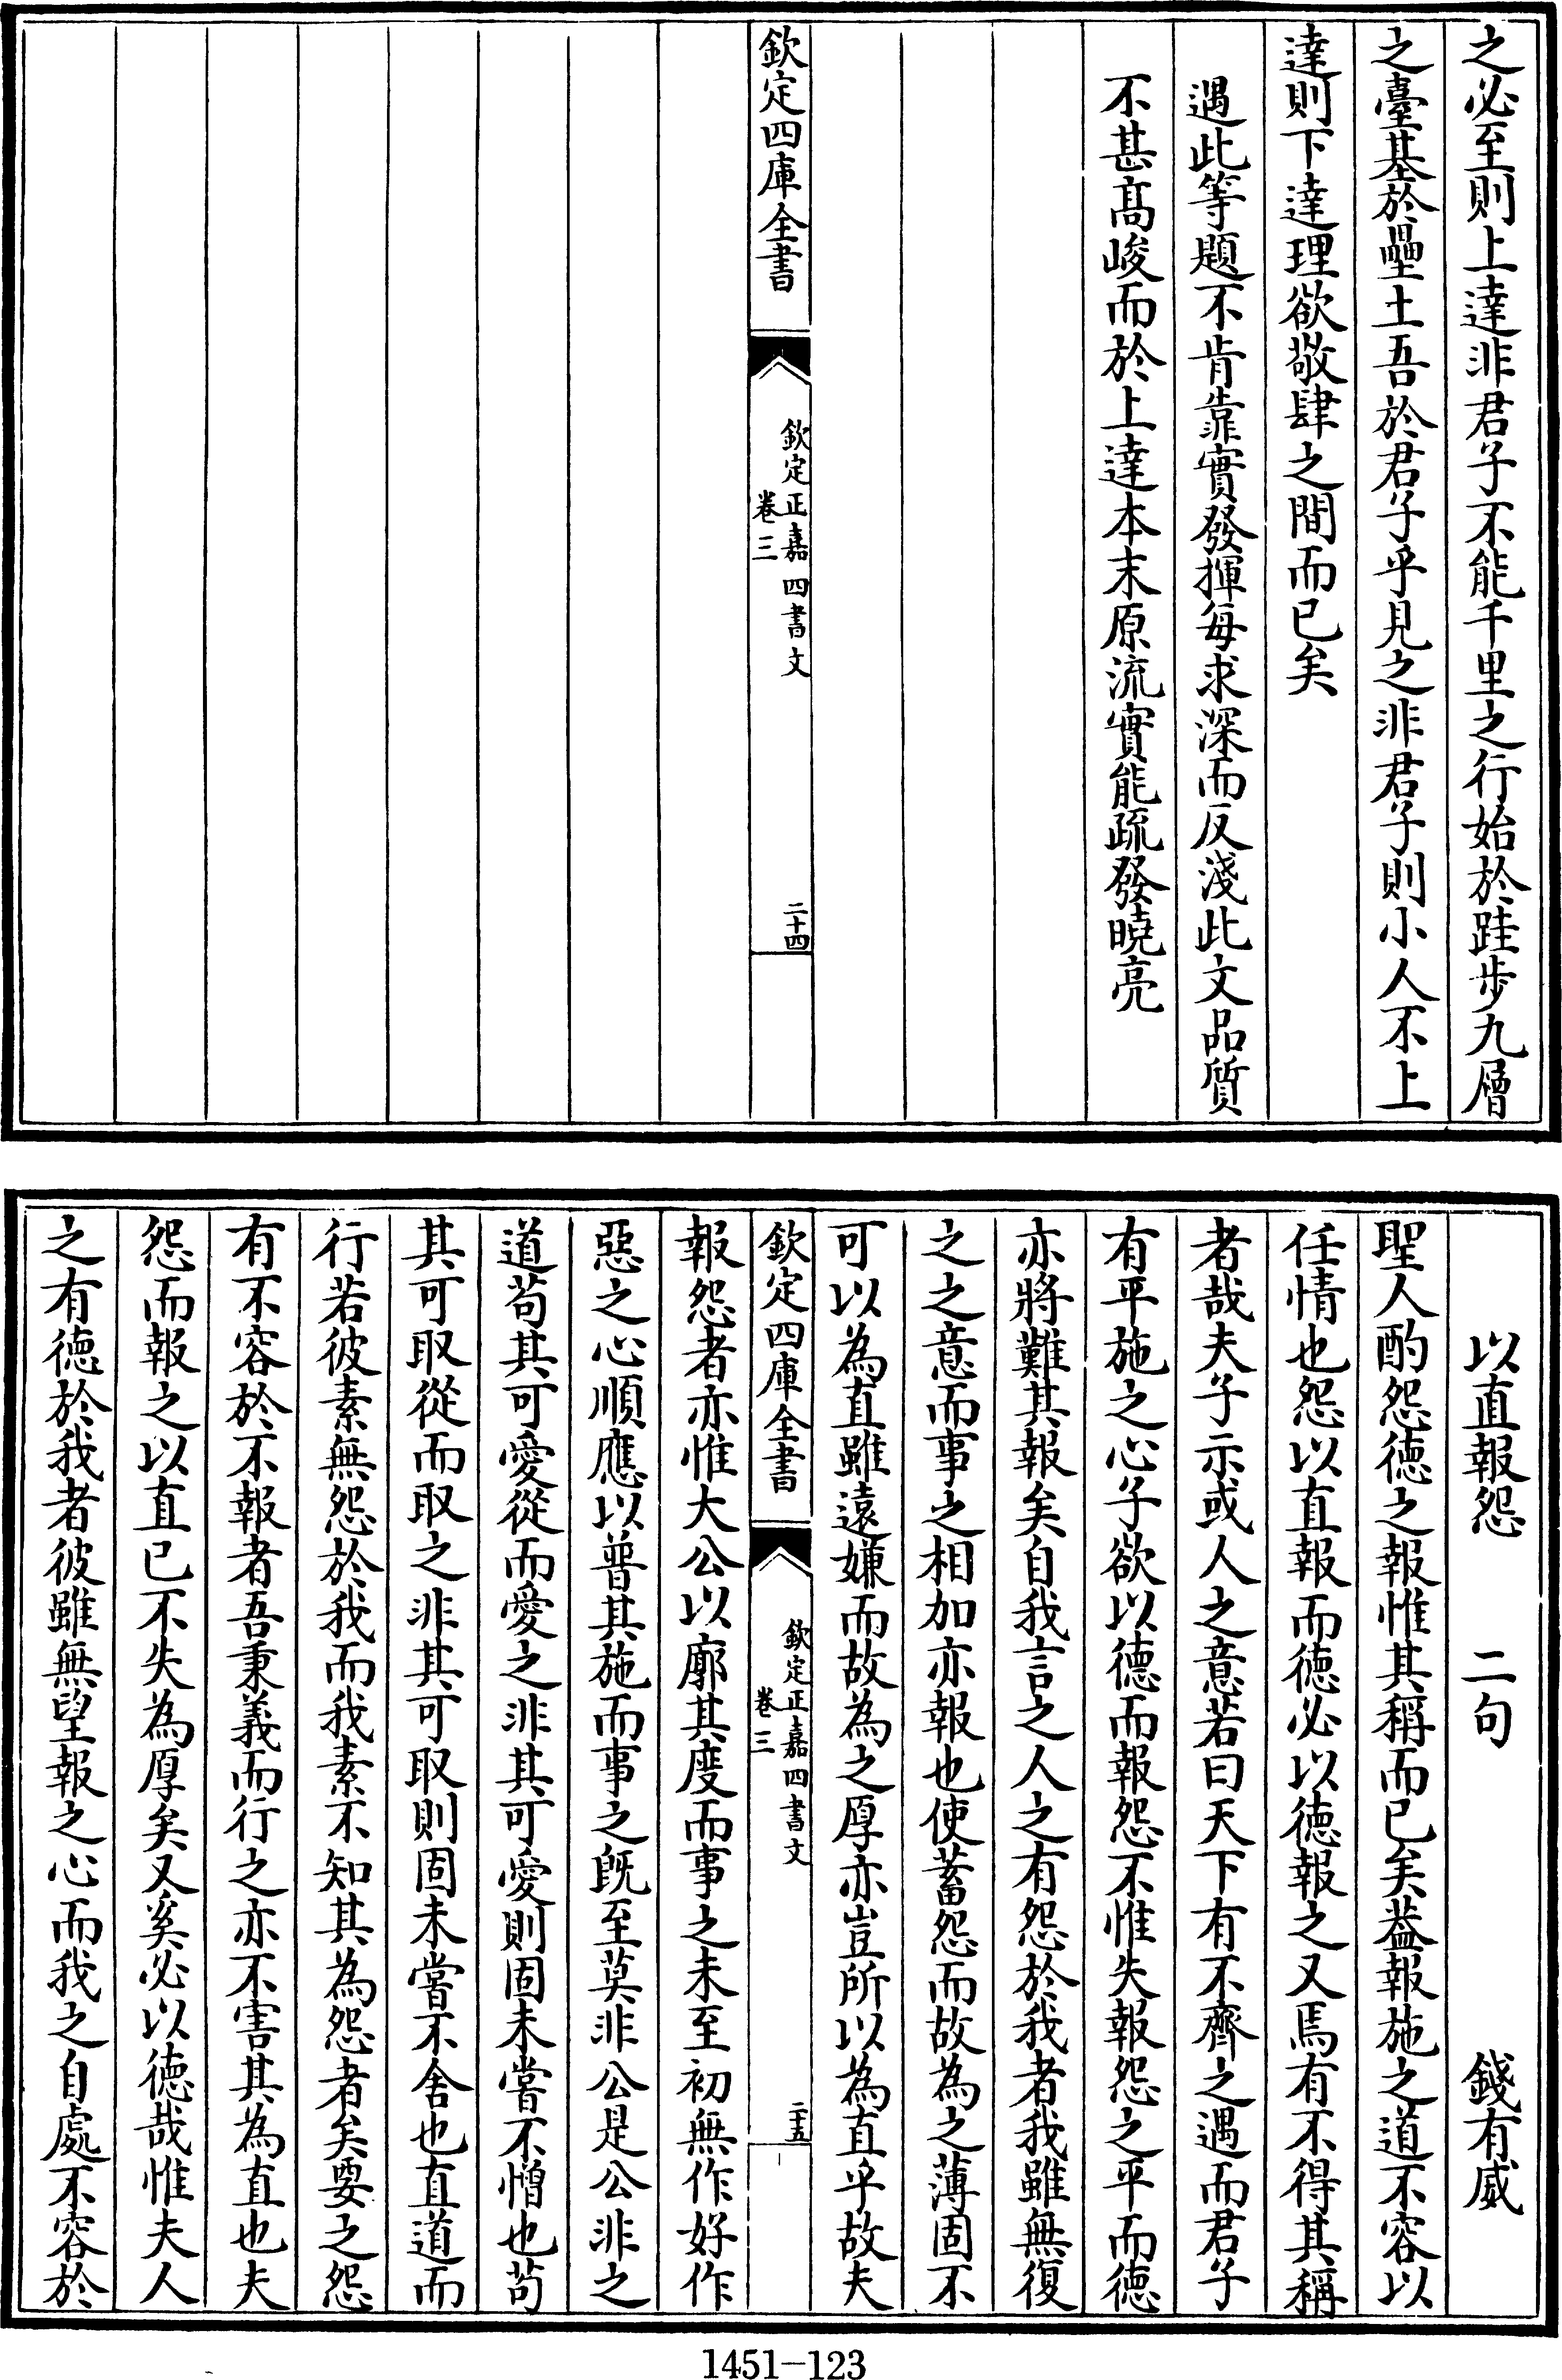 之必至則上達非君子不能千里之行始於跬步九層
之臺基於壘土吾於君子乎見之非君子則小人不上
達則下達理欲敬肆之間而已矣
遇此等題不肯靠實發揮每求深而反淺此文品質
不甚髙峻而於上達本末原流實能疏發曉亮
欽定四庫全書
欽定正嘉四書文
卷三
二十四
以直報怨 二句 錢有威
聖人酌怨徳之報惟其稱而已矣葢報施之道不容以
任情也怨以直報而徳必以徳報之又焉有不得其稱
者哉夫子示或人之意若曰天下有不齊之遇而君子
有平施之心子欲以德而報怨不惟失報怨之平而德
亦將難其報矣自我言之人之有怨於我者我雖無復
之之意而事之相加亦報也使蓄怨而故為之薄固不
可以為直雖遠嫌而故為之厚亦豈所以為直乎故夫
欽定四庫全書
欽定正嘉四書文
卷三
二十五
報怨者亦惟大公以廓其度而事之未至初無作好作
惡之心順應以普其施而事之旣至莫非公是公非之
道茍其可愛從而愛之非其可愛則固未嘗不憎也茍
其可取從而取之非其可取則固未嘗不舍也直道而
行若彼素無怨於我而我素不知其為怨者矣要之怨
有不容於不報者吾秉義而行之亦不害其為直也夫
怨而報之以直已不失為厚矣又奚必以徳哉惟夫人
之有徳於我者彼雖無望報之心而我之自處不容於
1451-123